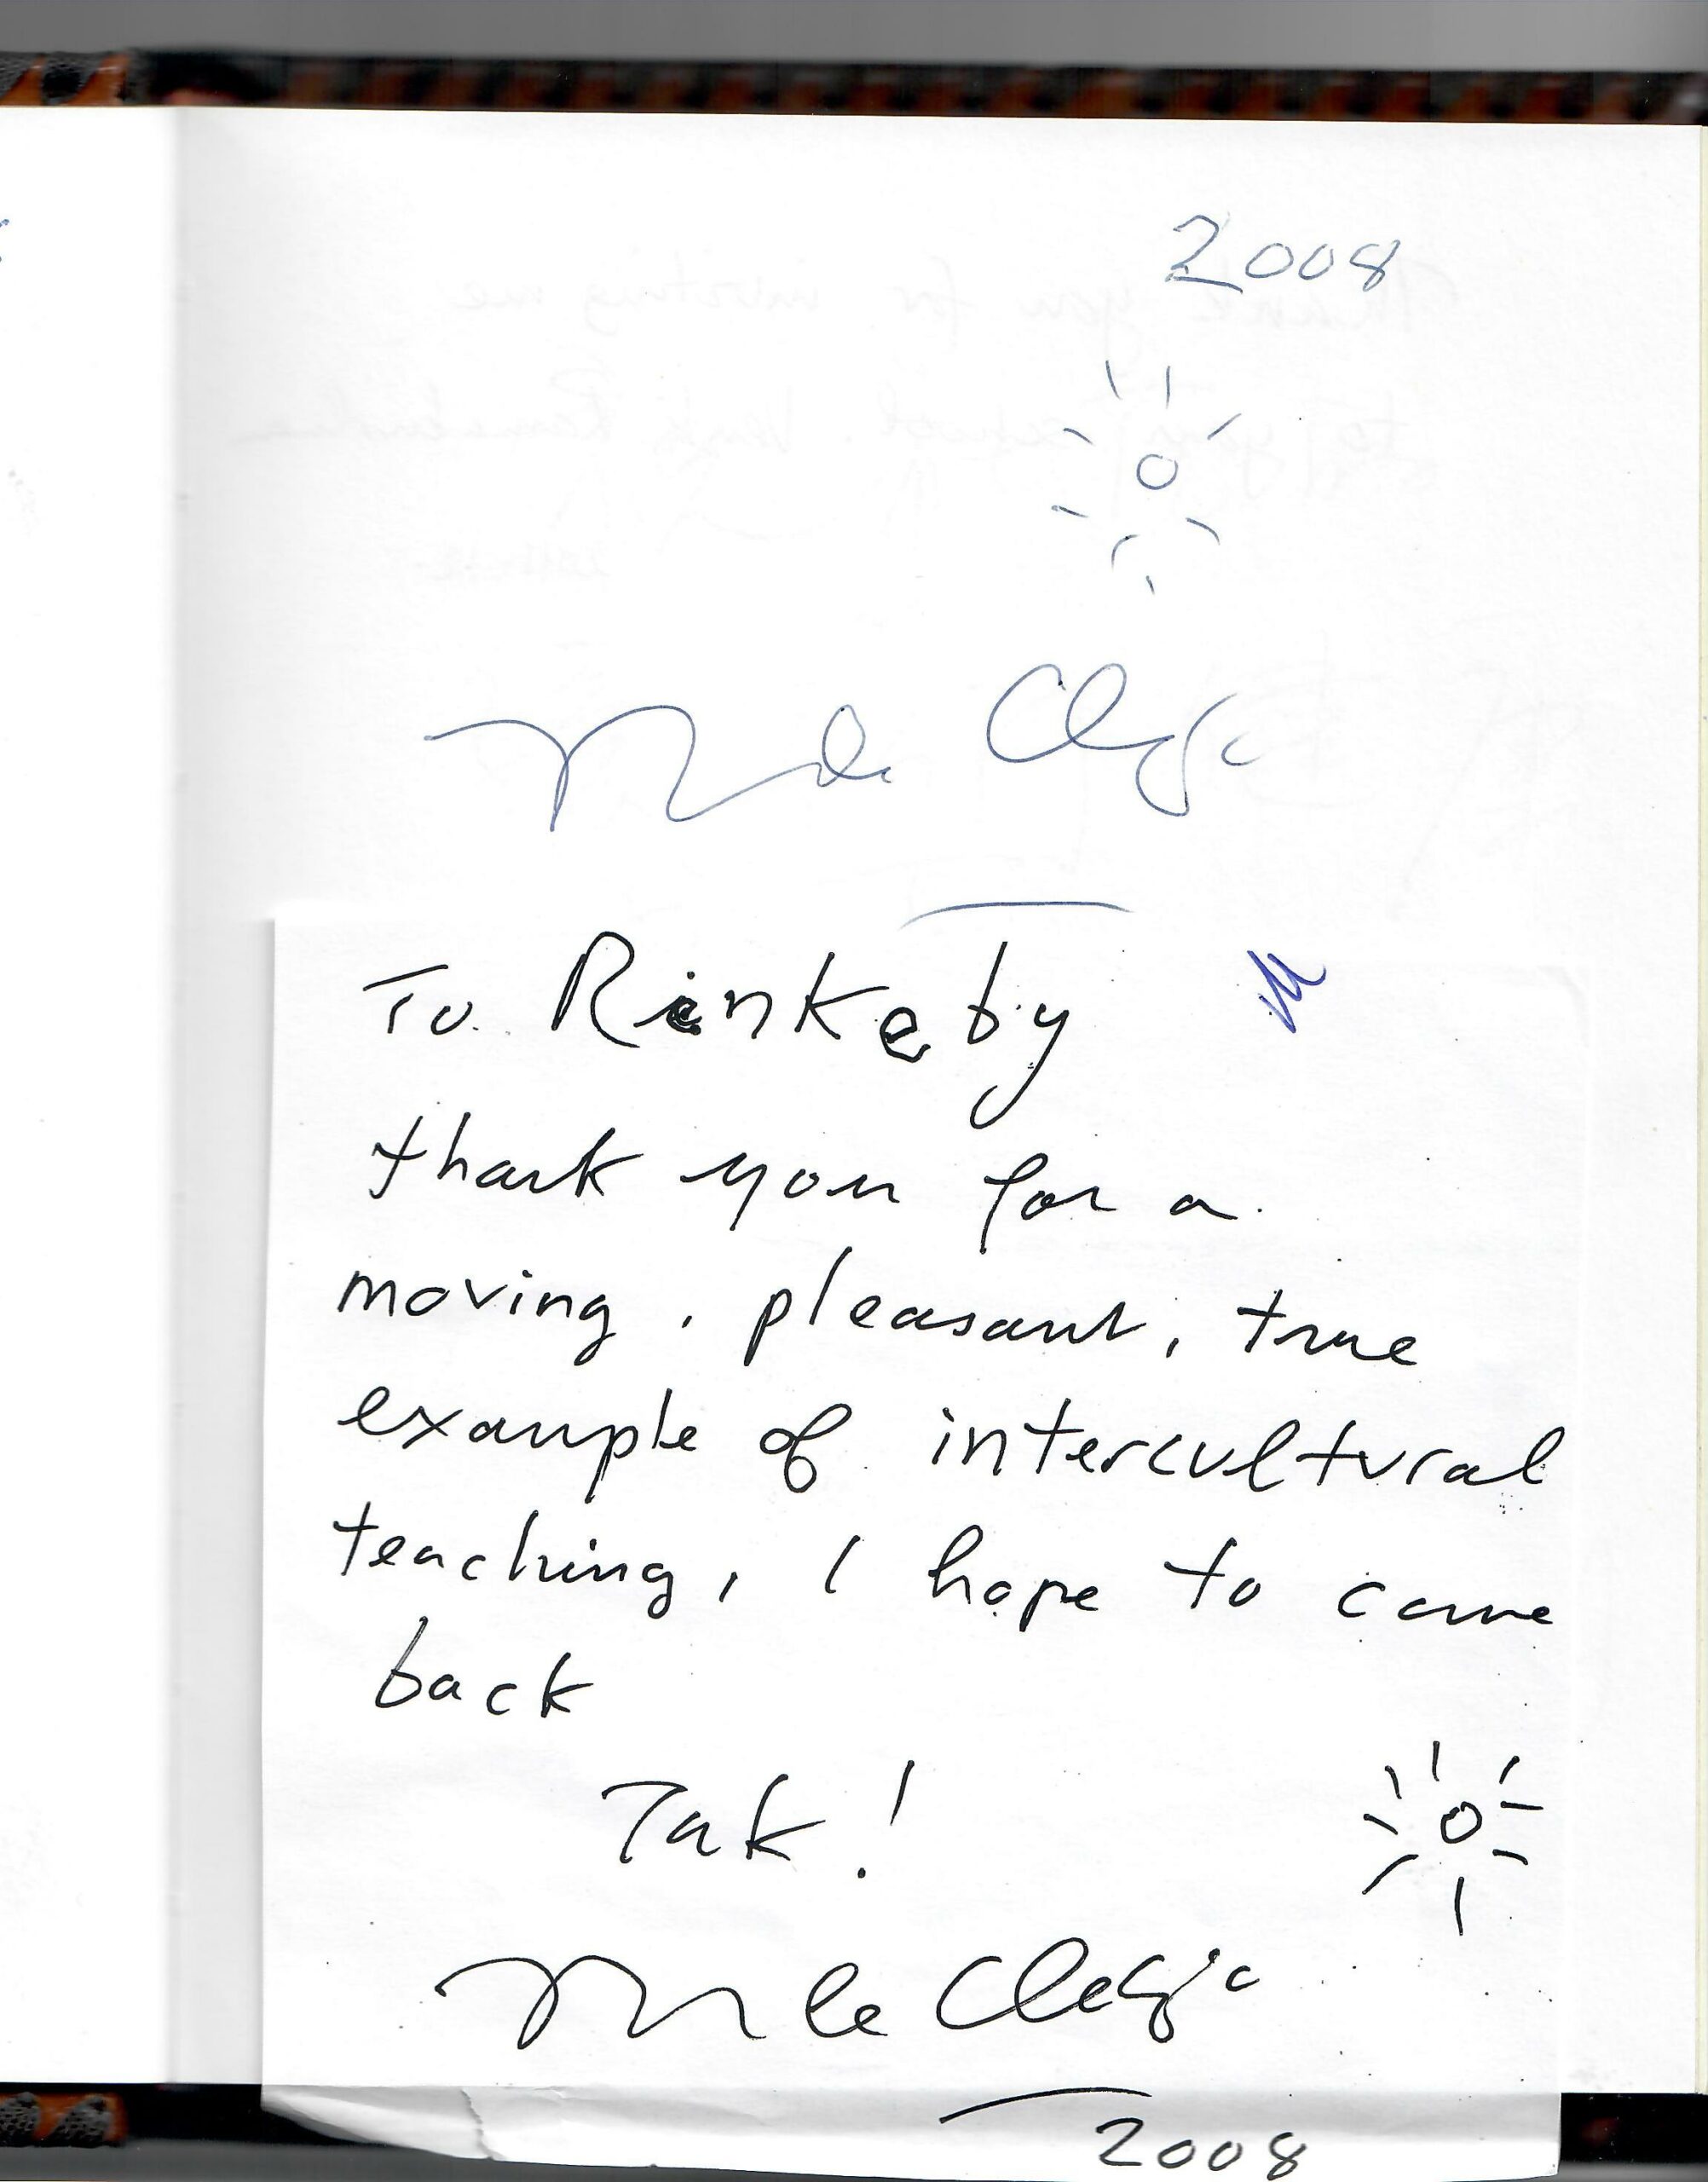 2008
Le Clézio
To Rinkeby
thank you for a
moving, pleasant, true
example of intercultural
teaching, I hope to come
back
Tak!
Le Clézio
2008